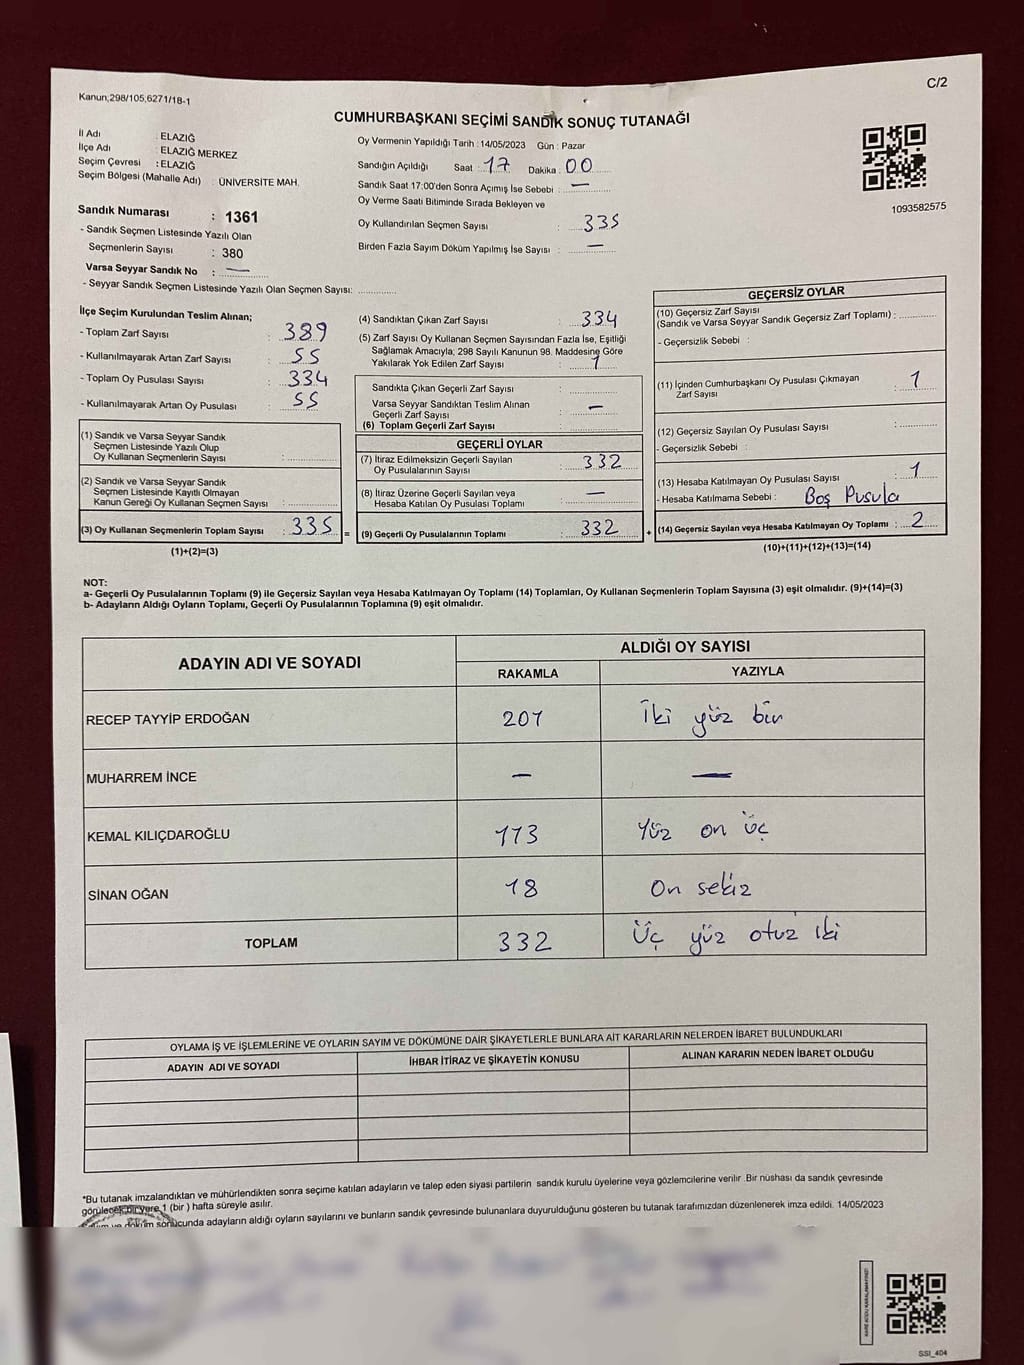 C/2
Kanun,298/105,6271/18-1
CUMHURBAŞKANI SEÇİMİ SANDIK SONUÇ TUTANAĞI
İl Adı : ELAZIĞ
İlçe Adı : ELAZIĞ MERKEZ
Seçim Çevresi : ELAZIĞ
Seçim Bölgesi (Mahalle Adı) : ÜNİVERSİTE MAH.
Sandık Numarası : 1361
- Sandık Seçmen Listesinde Yazılı Olan
Seçmenlerin Sayısı : 380
Varsa Seyyar Sandık No : —
- Seyyar Sandık Seçmen Listesinde Yazılı Olan Seçmen Sayısı: ..............
Oy Vermenin Yapıldığı Tarih : 14/05/2023 Gün : Pazar
Sandığın Açıldığı Saat : 17 Dakika : 00
Sandık Saat 17:00'den Sonra Açımış İse Sebebi : —
Oy Verme Saati Bitiminde Sırada Bekleyen ve
Oy Kullandırılan Seçmen Sayısı : 335
Birden Fazla Sayım Döküm Yapılmış İse Sayısı : —
1093582575
İlçe Seçim Kurulundan Teslim Alınan;
- Toplam Zarf Sayısı : 389
- Kullanılmayarak Artan Zarf Sayısı : 55
- Toplam Oy Pusulası Sayısı : 334
- Kullanılmayarak Artan Oy Pusulası : 55
(1) Sandık ve Varsa Seyyar Sandık
Seçmen Listesinde Yazılı Olup
Oy Kullanan Seçmenlerin Sayısı : ..............
(2) Sandık ve Varsa Seyyar Sandık
Seçmen Listesinde Kayıtlı Olmayan
Kanun Gereği Oy Kullanan Seçmen Sayısı : ..............
(3) Oy Kullanan Seçmenlerin Toplam Sayısı : 335 =
(1)+(2)=(3)
(4) Sandıktan Çıkan Zarf Sayısı : 334
(5) Zarf Sayısı Oy Kullanan Seçmen Sayısından Fazla İse, Eşitliği
Sağlamak Amacıyla; 298 Sayılı Kanunun 98. Maddesine Göre
Yakılarak Yok Edilen Zarf Sayısı : 1
Sandıkta Çıkan Geçerli Zarf Sayısı : ..............
Varsa Seyyar Sandıktan Teslim Alınan
Geçerli Zarf Sayısı : —
(6) Toplam Geçerli Zarf Sayısı : ..............
GEÇERLİ OYLAR
(7) İtiraz Edilmeksizin Geçerli Sayılan
Oy Pusulalarının Sayısı : 332
(8) İtiraz Üzerine Geçerli Sayılan veya
Hesaba Katılan Oy Pusulası Toplamı : —
(9) Geçerli Oy Pusulalarının Toplamı : 332 +
GEÇERSİZ OYLAR
(10) Geçersiz Zarf Sayısı
(Sandık ve Varsa Seyyar Sandık Geçersiz Zarf Toplamı) : ..............
- Geçersizlik Sebebi :
(11) İçinden Cumhurbaşkanı Oy Pusulası Çıkmayan
Zarf Sayısı : 1
(12) Geçersiz Sayılan Oy Pusulası Sayısı : ..............
- Geçersizlik Sebebi :
(13) Hesaba Katılmayan Oy Pusulası Sayısı : 1
- Hesaba Katılmama Sebebi : Boş Pusula
(14) Geçersiz Sayılan veya Hesaba Katılmayan Oy Toplamı : 2
(10)+(11)+(12)+(13)=(14)
NOT:
a- Geçerli Oy Pusulalarının Toplamı (9) ile Geçersiz Sayılan veya Hesaba Katılmayan Oy Toplamı (14) Toplamları, Oy Kullanan Seçmenlerin Toplam Sayısına (3) eşit olmalıdır. (9)+(14)=(3)
b- Adayların Aldığı Oyların Toplamı, Geçerli Oy Pusulalarının Toplamına (9) eşit olmalıdır.
ADAYIN ADI VE SOYADI
ALDIĞI OY SAYISI
RAKAMLA YAZIYLA
RECEP TAYYİP ERDOĞAN 201 İki yüz bir
MUHARREM İNCE — —
KEMAL KILIÇDAROĞLU 113 Yüz on üç
SİNAN OĞAN 18 On sekiz
TOPLAM 332 Üç yüz otuz iki
OYLAMA İŞ VE İŞLEMLERİNE VE OYLARIN SAYIM VE DÖKÜMÜNE DAİR ŞİKAYETLERLE BUNLARA AİT KARARLARIN NELERDEN İBARET BULUNDUKLARI
ADAYIN ADI VE SOYADI İHBAR İTİRAZ VE ŞİKAYETİN KONUSU ALINAN KARARIN NEDEN İBARET OLDUĞU
*Bu tutanak imzalandıktan ve mühürlendikten sonra seçime katılan adayların ve talep eden siyasi partilerin sandık kurulu üyelerine veya gözlemcilerine verilir .Bir nüshası da sandık çevresinde
görülecek bir yere 1 (bir ) hafta süreyle asılır.
ve döküm sonucunda adayların aldığı oyların sayılarını ve bunların sandık çevresinde bulunanlara duyurulduğunu gösteren bu tutanak tarafımızdan düzenlenerek imza edildi. 14/05/2023
SSI_404